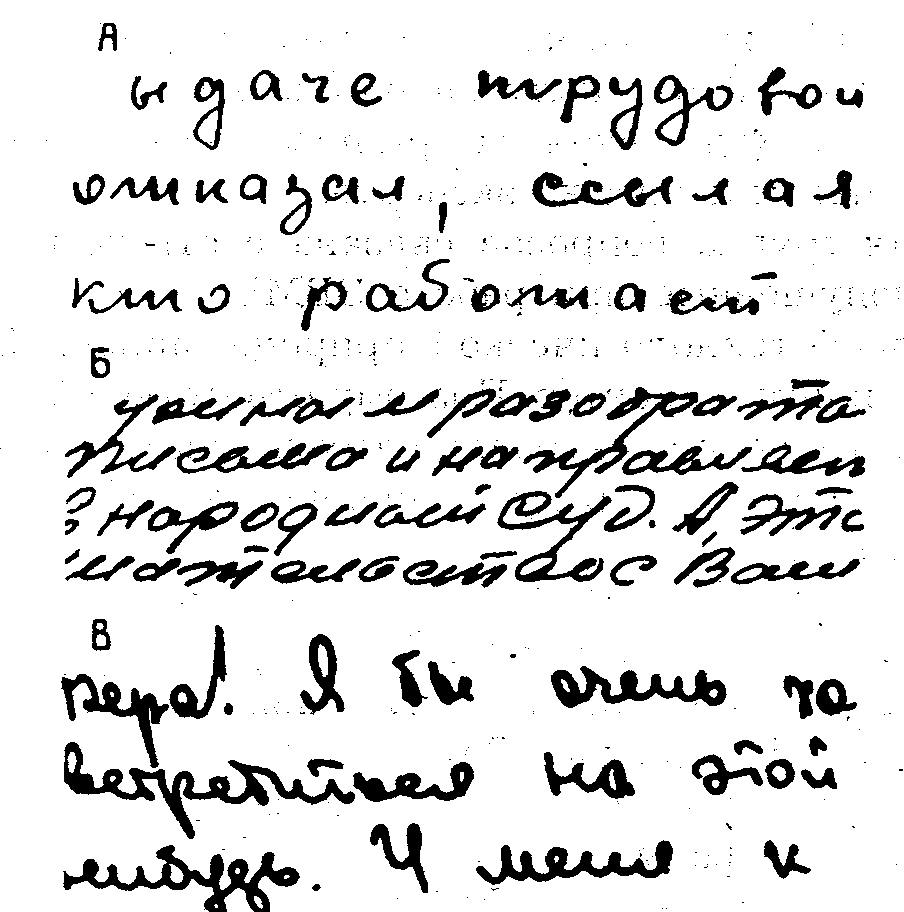 А
ыдаче трудовой
отказал, ссылая
кто работает
Б
разобрата
письмо и направляет
в народный суд. А, это
Ваш
В
Вера! Я бы очень хо
встретиться на этой
нибудь. У меня к